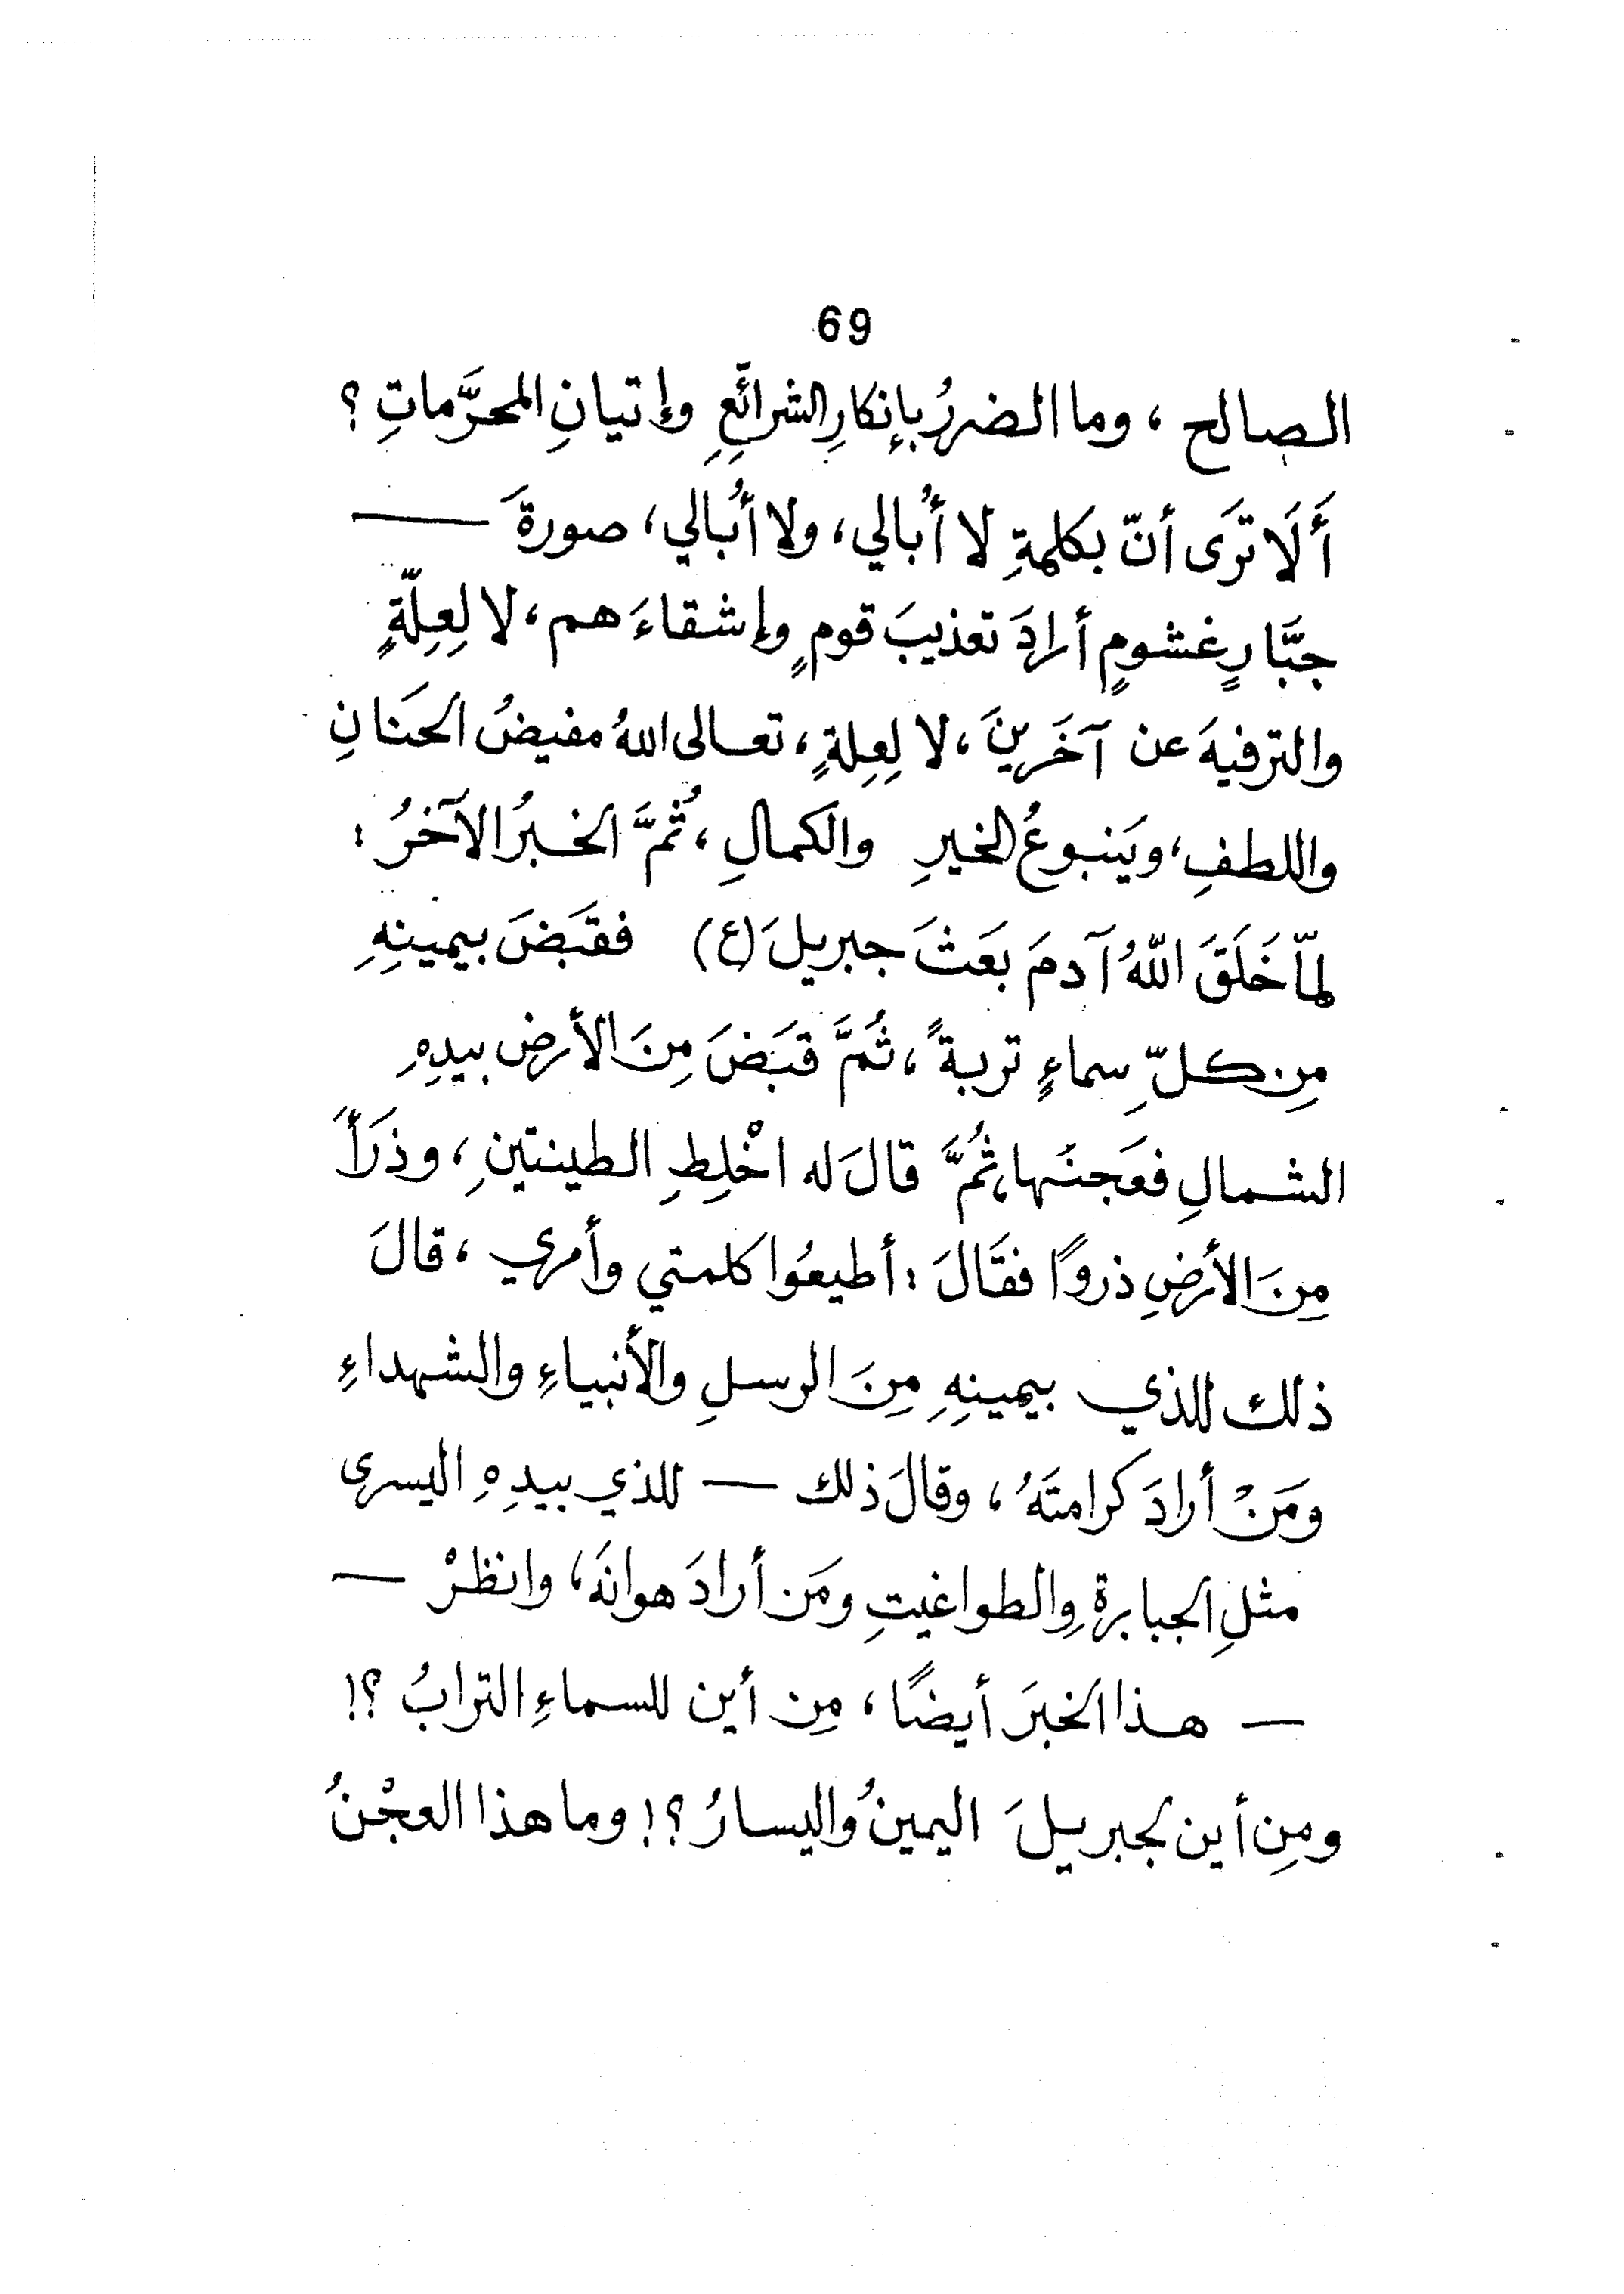 69
الصالح ، وما الضررُ بإنكارِ الشرائعِ وإتيانِ المحرَّماتِ ؟
أَلَا تَرَى أنّ بكلمةِ لا أُبالي، ولا أُبالي، صورةَ —
جبَّارٍ غشومٍ أرادَ تعذيبَ قومٍ وإشقاءَهم، لا لِعِلّةٍ
والترفيهَ عن آخَرِينَ، لا لِعِلةٍ، تعالى اللهُ مفيضُ الحنَانِ
واللطفِ، ويَنبوعُ الخيرِ والكمالِ، ثُمَّ الخبرُ الآخرُ :
لمّا خَلَقَ اللّهُ آدمَ بَعَثَ جبريلَ (ع) فقَبَضَ بيمينِهِ
مِن كلِّ سماءٍ تربةً، ثُمَّ قبَضَ مِنَ الأرضِ بيدِهِ
الشمالِ فعَجنَها، ثُمَّ قالَ له اخْلِطِ الطينتينِ، وذَرَأَ
مِنَ الأرضِ ذروًا فقَالَ : أطيعُوا كلمتي وأمري ، قالَ
ذلك للذي بيمينِهِ مِنَ الرسلِ والأنبياءِ والشهداءِ
ومَنْ أرادَ كرامتَهُ ، وقالَ ذلك — للذي بيدِهِ اليسرى
مثلِ الجبابرةِ والطواغيتِ ومَن أرادَ هوانَهُ، وانظرْ —
— هذا الخبرَ أيضًا ، مِن أين للسماءِ الترابُ ؟!
ومِن أين لجبريلَ اليمينُ واليسارُ ؟! وما هذا العجْنُ